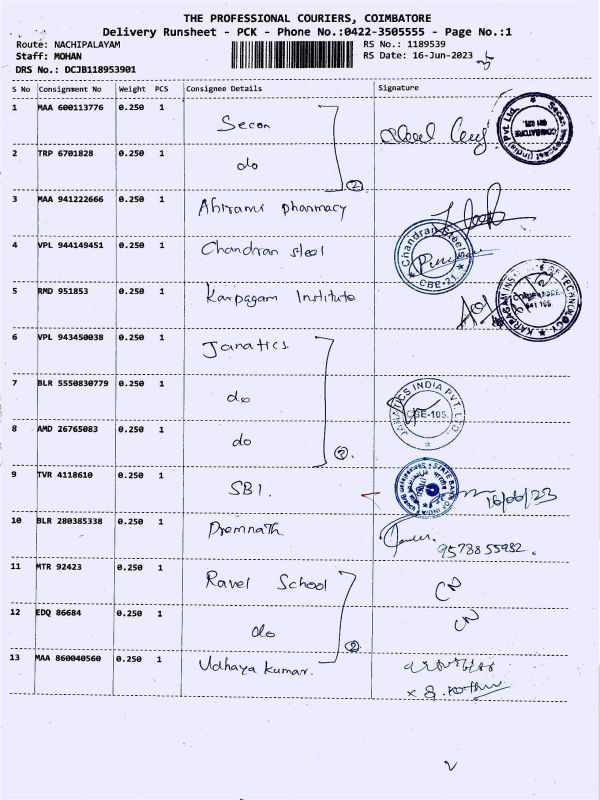 THE PROFESSIONAL COURIERS, COIMBATORE
Delivery Runsheet - PCK - Phone No.:0422-3505555 - Page No.:1
Route: NACHIPALAYAM RS No.: 1189539
Staff: MOHAN RS Date: 16-Jun-2023
DRS No.: DCJB118953901
S No Consignment No Weight PCS Consignee Details Signature
1 MAA 600113776 0.250 1 Secon
2 TRP 6701828 0.250 1 do 2
3 MAA 941222666 0.250 1 Abirami pharmacy
4 VPL 944149451 0.250 1 Chandran steel
Chandran Steels
CBE-21
5 RMD 951853 0.250 1 Karpagam Institute
KARPAGAM INSTITUTE OF TECHNOLOGY
COIMBATORE
641 105
6 VPL 943450038 0.250 1 Janatics
7 BLR 5550830779 0.250 1 do
JANATICS INDIA PVT. LTD
CBE-105
8 AMD 26765083 0.250 1 do
9 TVR 4118610 0.250 1 SBI.
STATE BANK OF INDIA
16/06/23
10 BLR 280385338 0.250 1 Premnath
9578855982.
11 MTR 92423 0.250 1 Ravel School CN
12 EDQ 86684 0.250 1 do 2 CN
13 MAA 860040560 0.250 1 Udhaya Kumar.